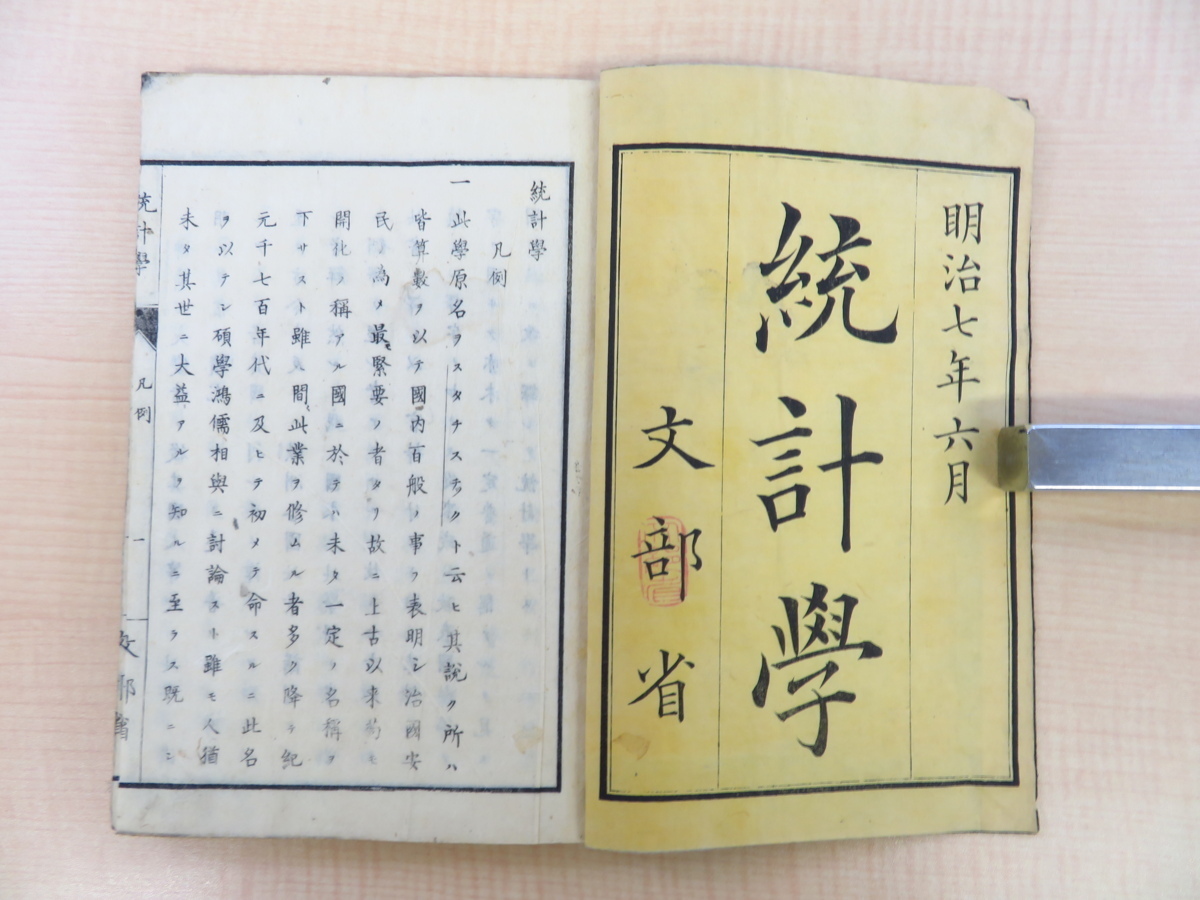 明治七年六月
統計學
文部省
統計學
凡例
一此學原名ヲスタチスチックト云ヒ其說ク所ハ
皆算數ヲ以テ國內百般ノ事ヲ表明シ治國安
民ノ為メ最緊要ノ者タリ故ニ上古以来苟モ
開化ノ稱アル國ニ於テハ未タ一定ノ名稱ヲ
下サスト雖ﾓ間此業ヲ修ムル者多ク降テ紀
元千七百年代ニ及ヒテ初メテ命スルニ此名
ヲ以テシ碩學鴻儒相與ニ討論スト雖モ人猶
未タ其世ニ大益アルヲ知ルニ至ラス既ニシ
統計學
凡例
一
文部省